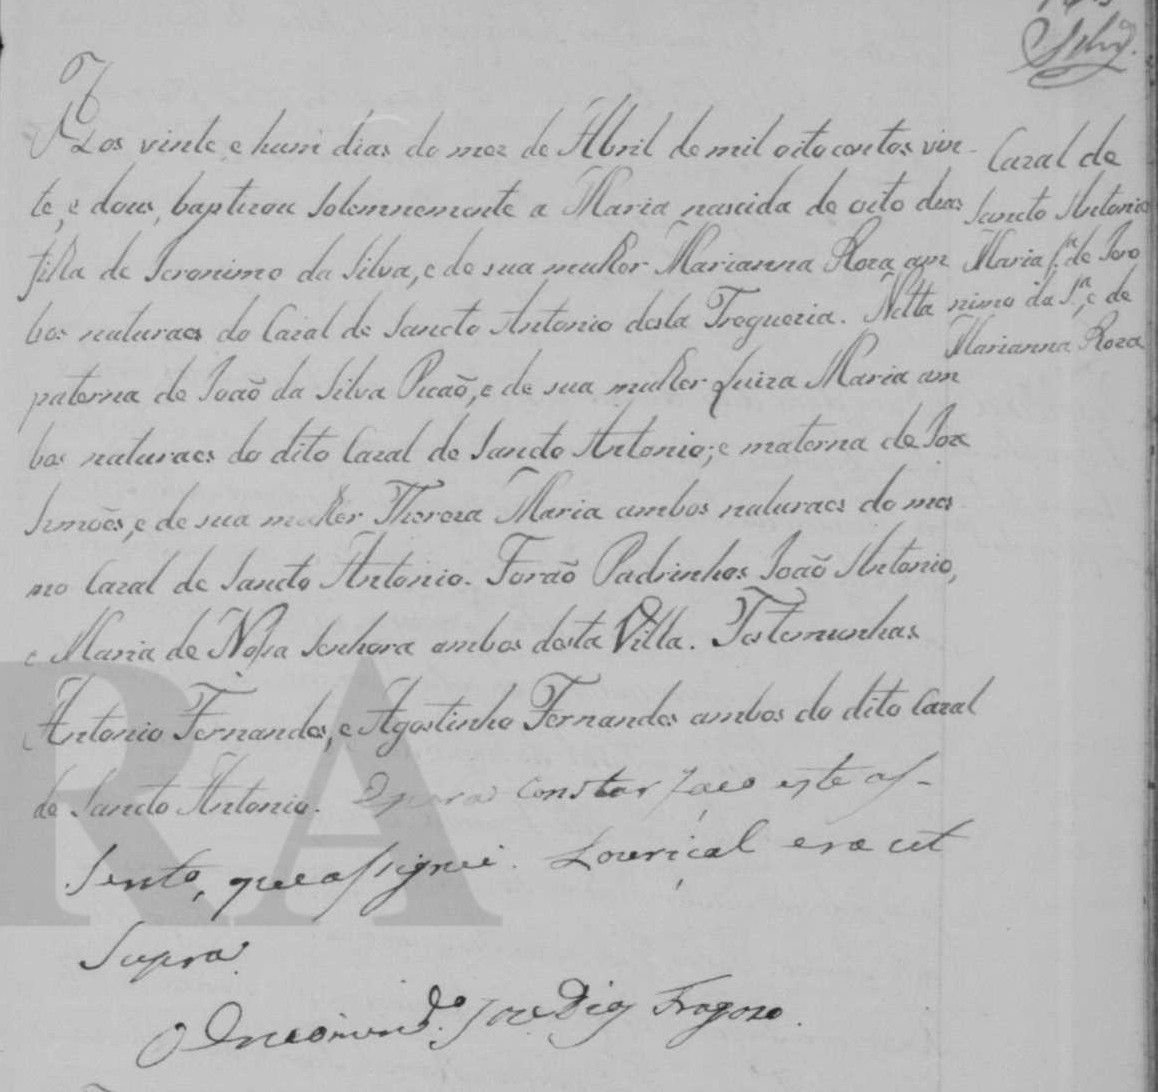 Silvª.
Aos vinte e hum dias do mez de Abril de mil oito centos vin-
te, e dous, baptizou solemnemente a Maria nascida de oito dias
filha de Jeronimo da Silva, e de sua mulher Marianna Roza am
bos naturaes do Cazal de Sancto Antonio desta Freguezia. Netta
paterna de João da Silva Picão, e de sua mulher Luiza Maria am
bos naturaes do dito Cazal de Sancto Antonio; e materna de Joze
Simões, e de sua mulher Thereza Maria ambos naturaes do mes
mo Cazal de Sancto Antonio. Forão Padrinhos João Antonio,
e Maria de Nossa Senhora ambos desta Villa. Testemunhas
Antonio Fernandes, e Agostinho Fernandes ambos do dito Cazal
de Sancto Antonio. E para constar faco este as-
sento, que assignei. Louriçal era ut
supra
O Encomend.º Joze Dias Fragozo.
Cazal de
Sancto Antonio
Maria f.ª de Jero
nimo da S.ª, e de
Marianna Roza
RA